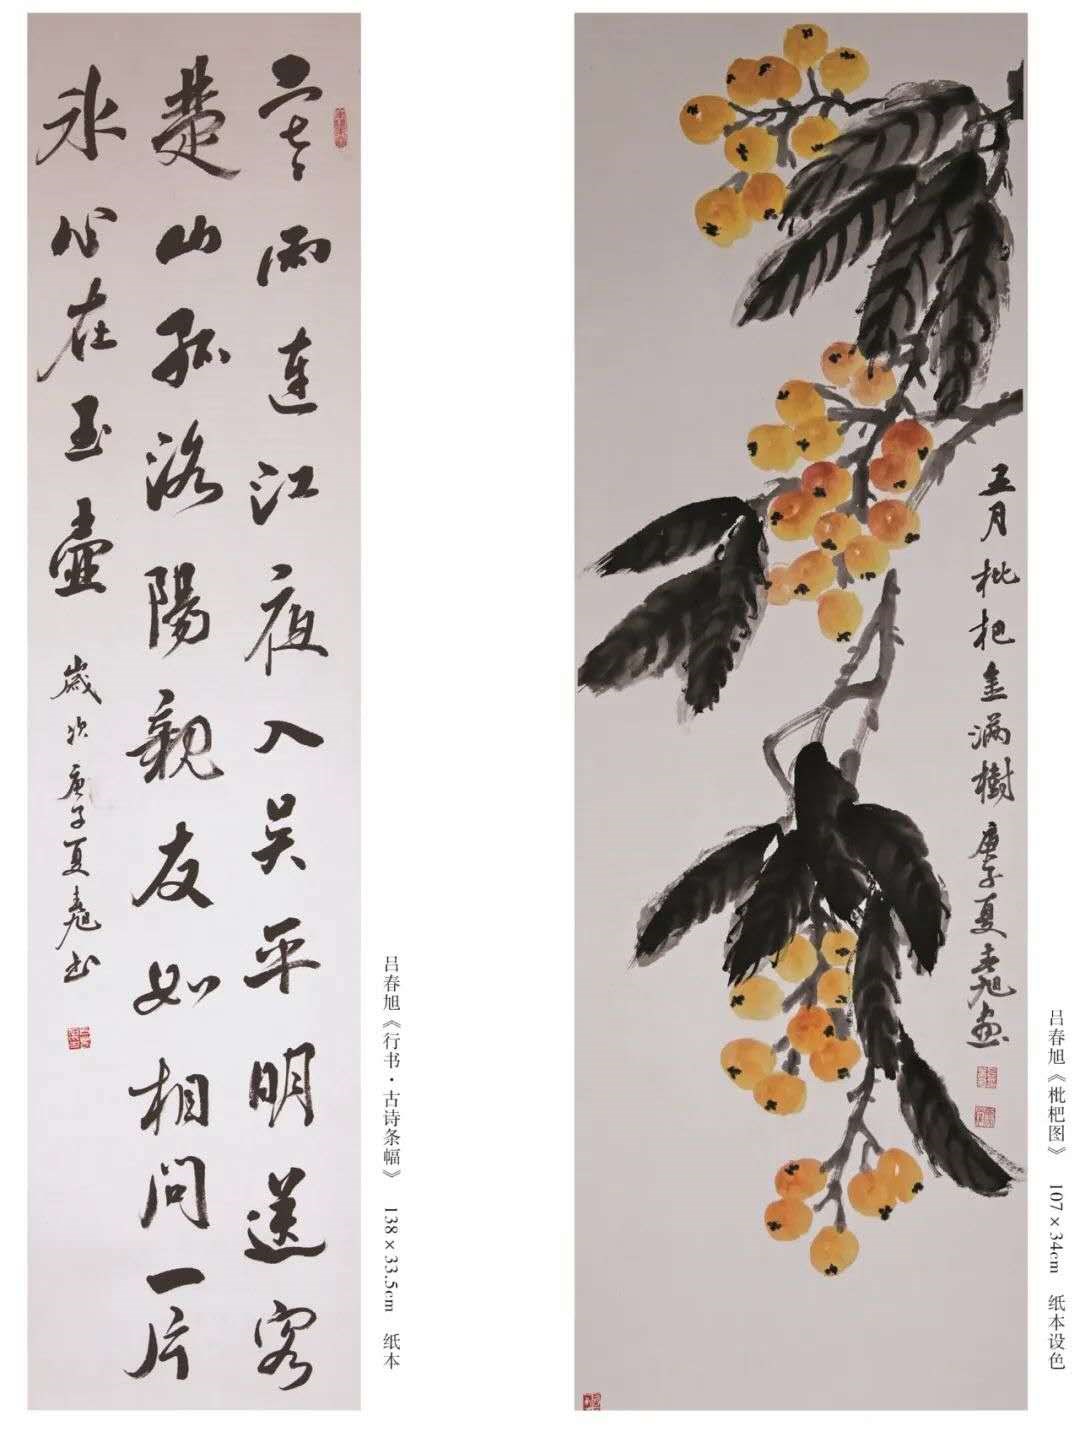 寒雨連江夜入吴平明送客
楚山孤洛陽親友如相問一片
冰心在玉壺
歲次庚子夏春旭书
吕春旭《行书·古诗条幅》 138×33.5cm 纸本
五月枇杷金滿樹 庚子夏春旭画
吕春旭《枇杷图》 107×34cm 纸本设色